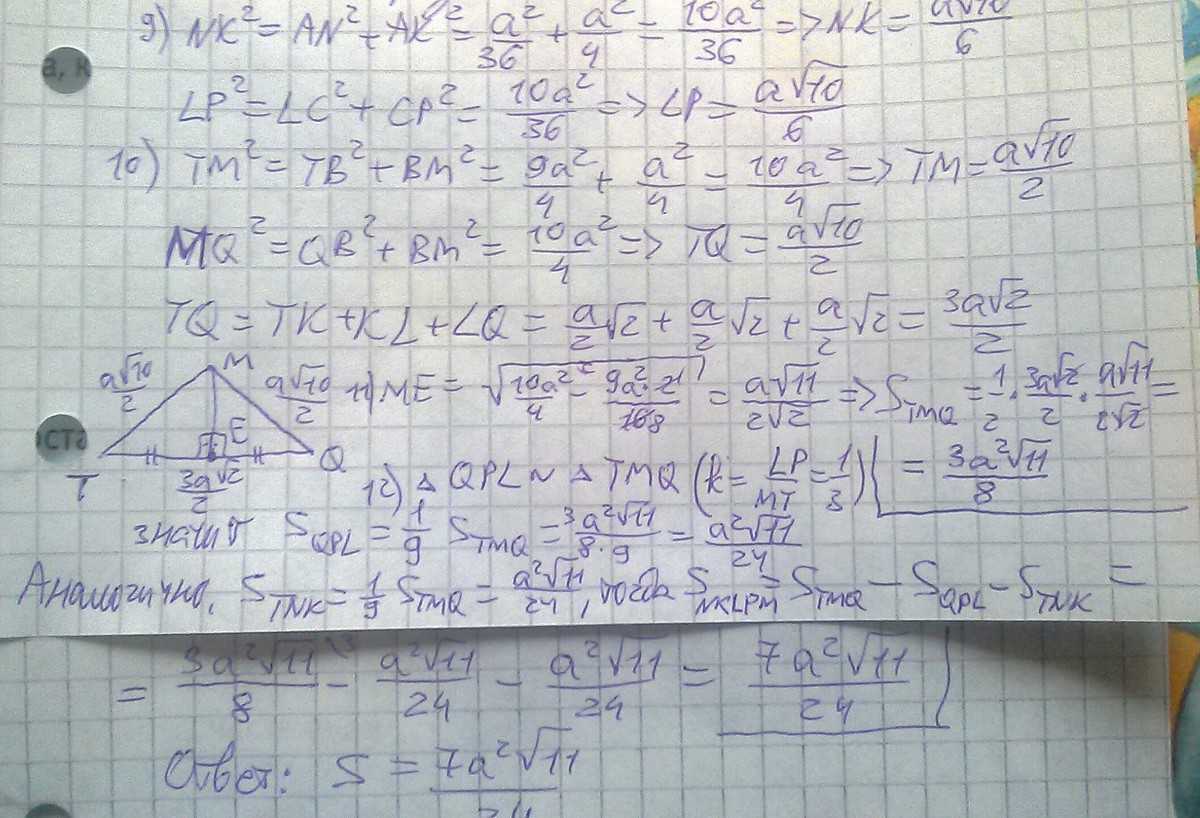 9) NK² = AN² + AK² = a²/36 + a²/4 = 10a²/36 => NK = a√10/6
LP² = LC² + CP² = 10a²/36 => LP = a√10/6
10) TM² = TB² + BM² = 9a²/4 + a²/4 = 10a²/4 => TM = a√10/2
MQ² = QB² + BM² = 10a²/4 => TQ = a√10/2
TQ = TK + KL + LQ = a/2 √2 + a/2 √2 + a/2 √2 = 3a√2/2
M
a√10/2
a√10/2
E
T
Q
3a√2/2
11) ME = √(10a²/4 - 9a²·2¹/168) = a√11/2√2 => S_TMQ = 1/2 · 3a√2/2 · a√11/2√2 =
= 3a²√11/8
12) △ QPL ~ △ TMQ (k = LP/MT = 1/3)
значит S_QPL = 1/9 S_TMQ = 3a²√11/8·9 = a²√11/24
Аналогично, S_TNK = 1/9 S_TMQ = a²√11/24, тогда S_NKLPM = S_TMQ - S_QPL - S_TNK =
= 3a²√11/8 - a²√11/24 - a²√11/24 = 7a²√11/24
Ответ: S = 7a²√11/24